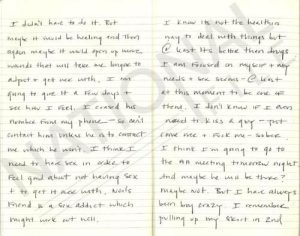 I didn't have to do it. But
maybe it would be healing and then
again maybe it would open up more
wounds that will take me longer to
adjust + get over with. I am
going to give it a few days +
see how I feel. I erased his
number from my phone - so can't
contact him unless he is to contact
me which he won't. I think I
need to have sex in order to
feel good about not having sex
+ to get it over with. Noel's
friend is a sex addict which
might work out well.
I know its not the healthiest
way to deal with things but
@ least its better than drugs
I am focused on myself + my
needs + love seems - @ least
at this moment to be one of
them. I don't know if I even
need to kiss a guy - just
come over + fuck me - sober
I think I'm going to go to
the AA meeting tomorrow night
and maybe he will be there?
maybe not. But I have always
been boy crazy. I remember
pulling up my skirt in 2nd